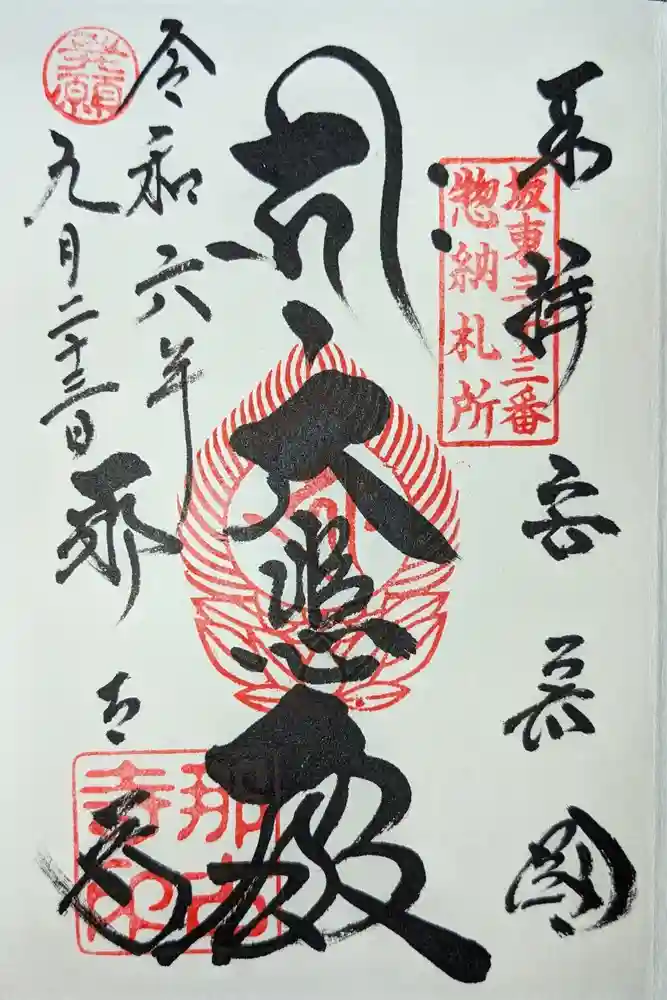 奉拝
安房國
坂東三十三番
惣納札所
大悲殿
令和六年
九月二十三日
那古寺
那古
寺印